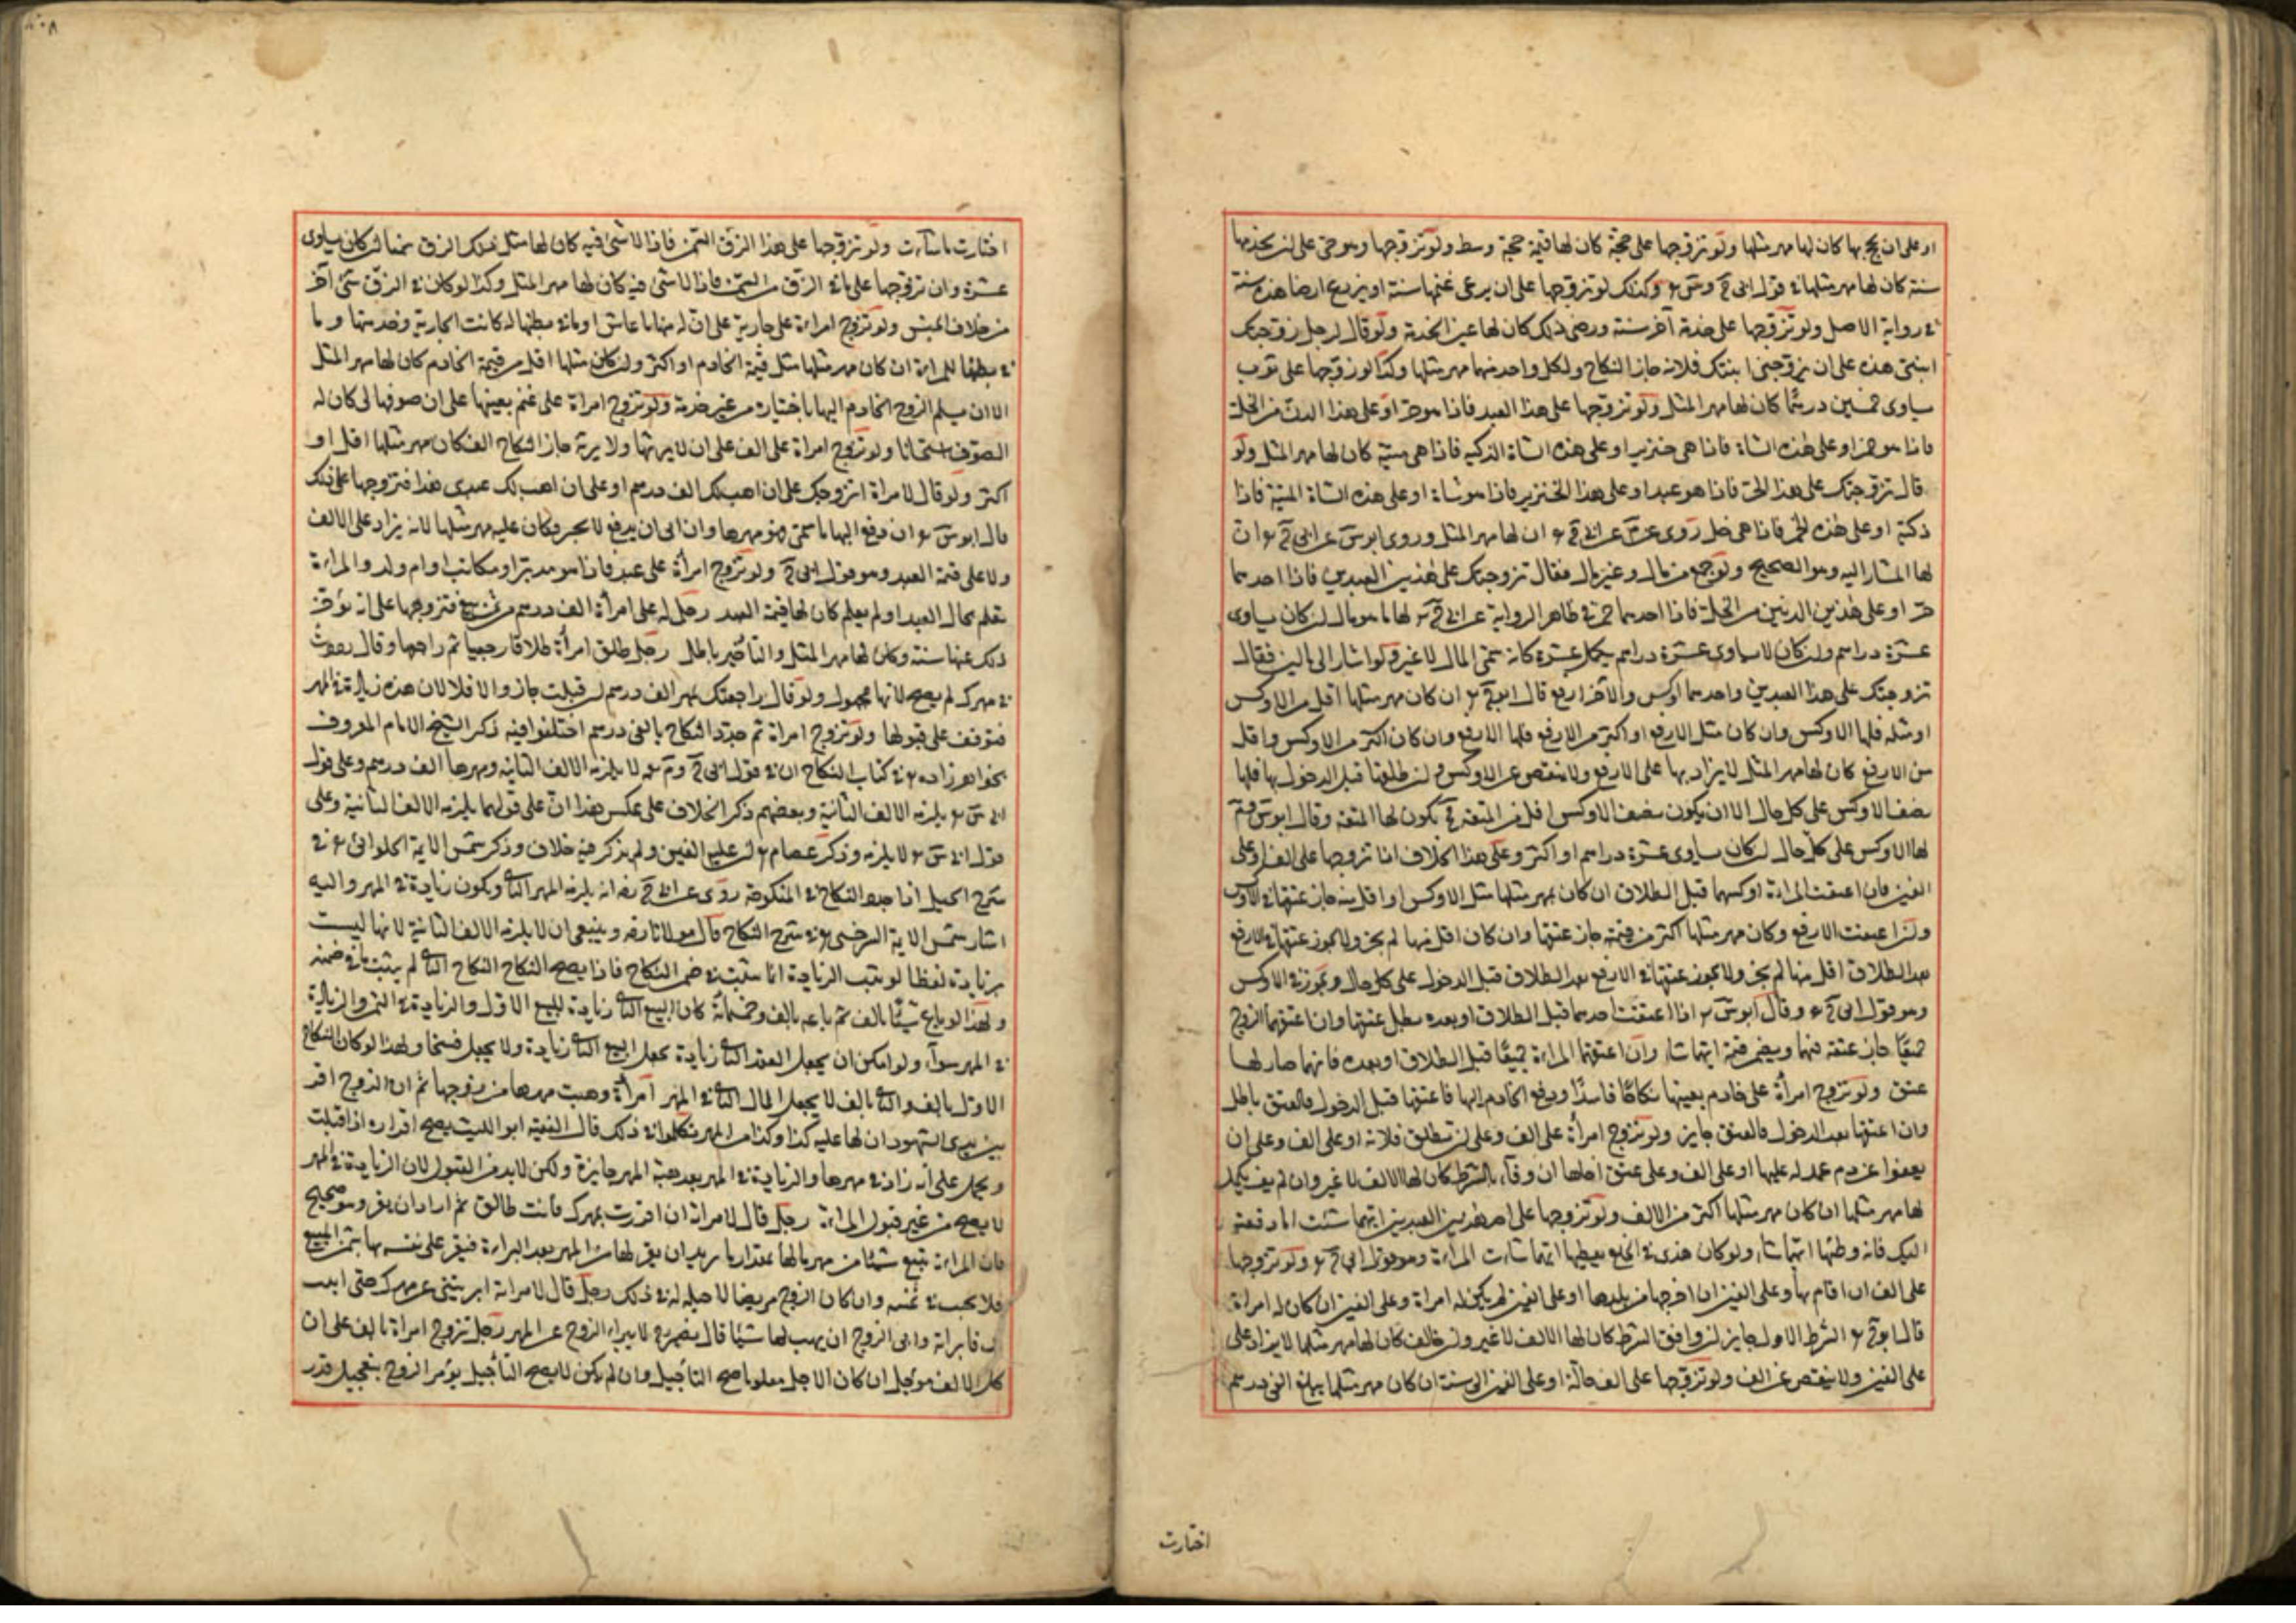 او على ان يحج بها كان لها مهر مثلها ولو تزوجها على حجة كان لها قيمة حجة وسط ولو تزوجها وهو حر على ان يخدمها
سنة كان لها مهر مثلها في قول ابى ح وس ر وكذلك لو تزوجها على ان يرعى غنمها سنة او يزرع ارضها هذه سنة
في رواية الاصل ولو تزوجها على خدمة آخر سنة ورضى ذلك كان لها عين الخدمة ولو قال لرجل زوجتك
ابنتى هذه على ان تزوجنى ابنتك فلانه جاز النكاح ولكل واحد منهما مهر مثلها وكذا لو زوجها على ثوب
يساوى خمسين درهما كان لها مهر المثل ولو تزوجها على هذا العبد فاذا هو حر او على هذا الدن من الخل
فاذا هو خمر او على هذه الشاة فاذا هى خنزير او على هذه الشاة الذكيه فاذا هى ميتة كان لها مهر المثل ولو
قال تزوجتك على هذا الحر فاذا هو عبد او على هذا الخنزير فاذا هو شاة او على هذه الشاة الميتة فاذا
ذكية او على هذه الخمر فاذا هى خل روى عن عن ابى ح ر ان لها مهر المثل وروى ابو س عن ابى ح ر ان
لها المشار اليه وهو الصحيح ولو جمع من مال وغير مال فقال تزوجتك على هذين العبدين فاذا احدهما
حر او على هذين الدنين من الخل فاذا احدهما خمر في ظاهر الرواية عن ابى ح ر لها ما هو مال ان كان يساوى
عشرة دراهم وان كان لا يساوى عشرة دراهم يكمل عشرة كانه سمى المال لا غير ولو اشار الى مالين فقال
تزوجتك على هذا العبدين واحدهما اوكس والآخر ارفع قال ابو ح ر ان كان مهر مثلها اقل من الاوكس
او مثله فلها الاوكس وان كان مثل الارفع او اكثر من الارفع فلها الارفع وان كان اكثر من الاوكس واقل
من الارفع كان لها مهر المثل لا يزاد بها على الارفع ولا ينقص عن الاوكس وان طلقها قبل الدخول بها فلها
نصف الاوكس على كل حال الا ان يكون نصف الاوكس اقل من المتعة فح يكون لها المتعة وقال ابو س وم
لها الاوكس على كل حال ان كان يساوى عشرة دراهم او اكثر وعلى هذا الخلاف اذا تزوجها على الف او على
الفين فان اعتقت المراة اوكسهما قبل الطلاق ان كان مهر مثلها مثل الاوكس او اقل منه جاز عتقها في الاوكس
وان اعتقت الارفع وكان مهر مثلها اكثر من قيمته جاز عتقها وان كان اقل منها لم يجز ولا يجوز عتقها في الارفع
بعد الطلاق اقل منها لم يجز ولا يجوز عتقها في الارفع بعد الطلاق قبل الدخول على كل حال ويجوز في الاوكس
وهو قول ابى ح ر وقال ابو س ر اذا اعتقت احدهما قبل الطلاق او بعده بطل عتقها وان اعتقهما الزوج
جميعا جاز عتقه فيهما ويضمن قيمة ايتهما شاء وان اعتقتهما المراة جميعا قبل الطلاق او بعده فانهما صار لها
عتق ولو تزوج امرأة على خادم بعينها نكاحا فاسدا ودفع الخادم اليها فاعتقها قبل الدخول فالعتق باطل
وان اعتقها بعد الدخول فالعتق جايز ولو تزوج امرأة على الف وعلى ان يطلق فلانة او على الف وعلى ان
يعفوا عن دم عمد له عليها او على الف وعلى عتق اخاها ان وفاء بالشرط كان لها الالف لا غير وان لم يف يكمل
لها مهر مثلها ان كان مهر مثلها اكثر من الالف ولو تزوجها على احد هذين العبدين ايتهما شئت انا دفعته
اليك فانه يعطيها ايتهما شاء ولو كان هذى في الخلع يعطيها ايتهما شاءت المرأة وهو قول ابى ح ر ولو تزوجها
على الف ان اقام بها وعلى الفين ان اخرجها من بلدها او على الفين ان لم يكن له امراة وعلى الفين ان كان له امراة
قال ابو ح ر الشرط الاول جايز ان وافق الشرط كان لها الالف لا غير وان خالف كان لها مهر مثلها لا يزاد على
على الفين ولا ينقص عن الف ولو تزوجها على الف حالة او على الفين الى سنة ان كان مهر مثلها يبلغ الفى درهم
اختارت
اختارت ما شاءت ولو تزوجها على هذا الزق السمن فاذا لا شئ فيه كان لها مثل ذلك الزق سمنا ان كان يساوى
عشرة وان تزوجها على ما في الزق من السمن فاذا لا شئ فيه كان لها مهر المثل وكذا لو كان في الزق شئ آخر
من خلاف الجنس ولو تزوج امراءة على جارية على ان له منها ما عاش او ما في بطنها له كانت الجارية وخدمتها وما
في بطنها للمراءة ان كان مهر مثلها مثل قيمة الخادم او اكثر وان كان مثلها اقل من قيمة الخادم كان لها مهر المثل
الا ان يسلم الزوج الخادم اليها باختياره من غير خدمة ولو تزوج امراة على غنم بعينها على ان صوفها لى كان له
الصوف استحسانا ولو تزوج امراة على الف على ان لا يرثها ولا يرثه جاز النكاح الف كان مهر مثلها اقل او
اكثر ولو قال لامراة اتزوجك على ان اهب لك الف درهم او على ان اهب لك عبدى هذا فتزوجها على ذلك
قال ابو س ر ان دفع اليها ما سمى فهو مهرها وان ابى ان يدفع لا يجبر وكان عليه مهر مثلها لا يزاد على الالف
ولا على قيمة العبد وهو قول ابى ح ولو تزوج امرأة على عبد فاذا هو مدبر او مكاتب او ام ولد والمراءة
تعلم بحال العبد او لم يعلم كان لها قيمة العبد رجل له على امرأة الف درهم من ثمن بيع فتزوجها على انه يؤخر
ذلك عنها سنة وكان لها مهر المثل والتأخير باطل رجل طلق امرأة طلاقا رجعيا ثم راجعها وقال زدت
في مهرك لم يصح لانها مجهول ولو قال راجعتك بمهر الف درهم ان قبلت جاز والا فلا لان هذه زيادة في المهر
فتوقف على قبولها ولو تزوج امراة ثم جدد النكاح بالفى درهم اختلفوا فيه ذكر الشيخ الامام المعروف
بخواهر زاده ر في كتاب النكاح ان في قول ابى ح وم ر لا يلزمه الالف الثانية ومهرها الف درهم وعلى قول
ابى س ر يلزمه الالف الثانية وبعضهم ذكر الخلاف على عكس هذا ان على قولهما يلزمه الالف الثانية وعلى
قول ابى س ر لا يلزمه وذكر عصام ر ان عليه الفين ولم يذكر فيه خلاف وذكر شمس الايمة الحلوانى ر في
شرح الحيل اذا جدد النكاح في المنكوحة روى عن ابى ح رضه انه يلزمه المهر الثانى ويكون زيادة في المهر واليه
اشار شمس الايمة السرخسى ر في شرح النكاح قال مولانا رضه وينبغى ان لا يلزمه الالف الثانية لانها ليست
بزيادة لفظا لو ثبت الزيادة انما يثبت في ضمن النكاح فاذا لم يصح النكاح النكاح الثانى لم يثبت ما في ضمنه
ولهذا لو باع شيئا بالف ثم باعه بالف وخمسمائة كان البيع الثانى زيادة للبيع الاول والزيادة في الثمن والزيادة
في المهر سواء ولو امكن ان يجعل العقد الثانى زيادة بجعل البيع الثانى زيادة ولا يجعل فسخا ولهذا لو كان النكاح
الاول بالف والثانى بالف لا يجعل المال الثانى في المهر امرأة وهبت مهرها من زوجها ثم ان الزوج اقر
بين يدى الشهود ان لها عليه كذا وكذا من المهر تكلموا في ذلك قال الفقيه ابو الليث يصح اقراره اذا قبلت
ويحمل على انه زاد في مهرها والزيادة في المهر بعد هبة المهر جايزة ولكن لا بد من القبول لان الزيادة في المهر
لا يصح من غير قبول المراة رجل قال لامراته ان اقررت بمهرك فانت طالق ثم اراد ان يقر وهو صحيح
فان المراءة تبيع شيئا من مهر مالها بمقدار ما يريد ان يقر لها من المهر بعد البراءة فيقر على نفسه لها بثمن المبيع
فلا يحنث في يمينه وان كان الزوج مريضا لا حيلة له في ذلك رجل قال لامراته ابرئينى عن مهرك حتى اهب
لك فابراته وابى الزوج ان يهب لها شيئا قال نصير لا يبراء الزوج عن المهر رجل تزوج امراة بالف على ان
كل الالف مؤجل ان كان الاجل معلوما صح التأجيل وان لم يكن لا يصح التأجيل يؤمر الزوج بتعجيل قدر